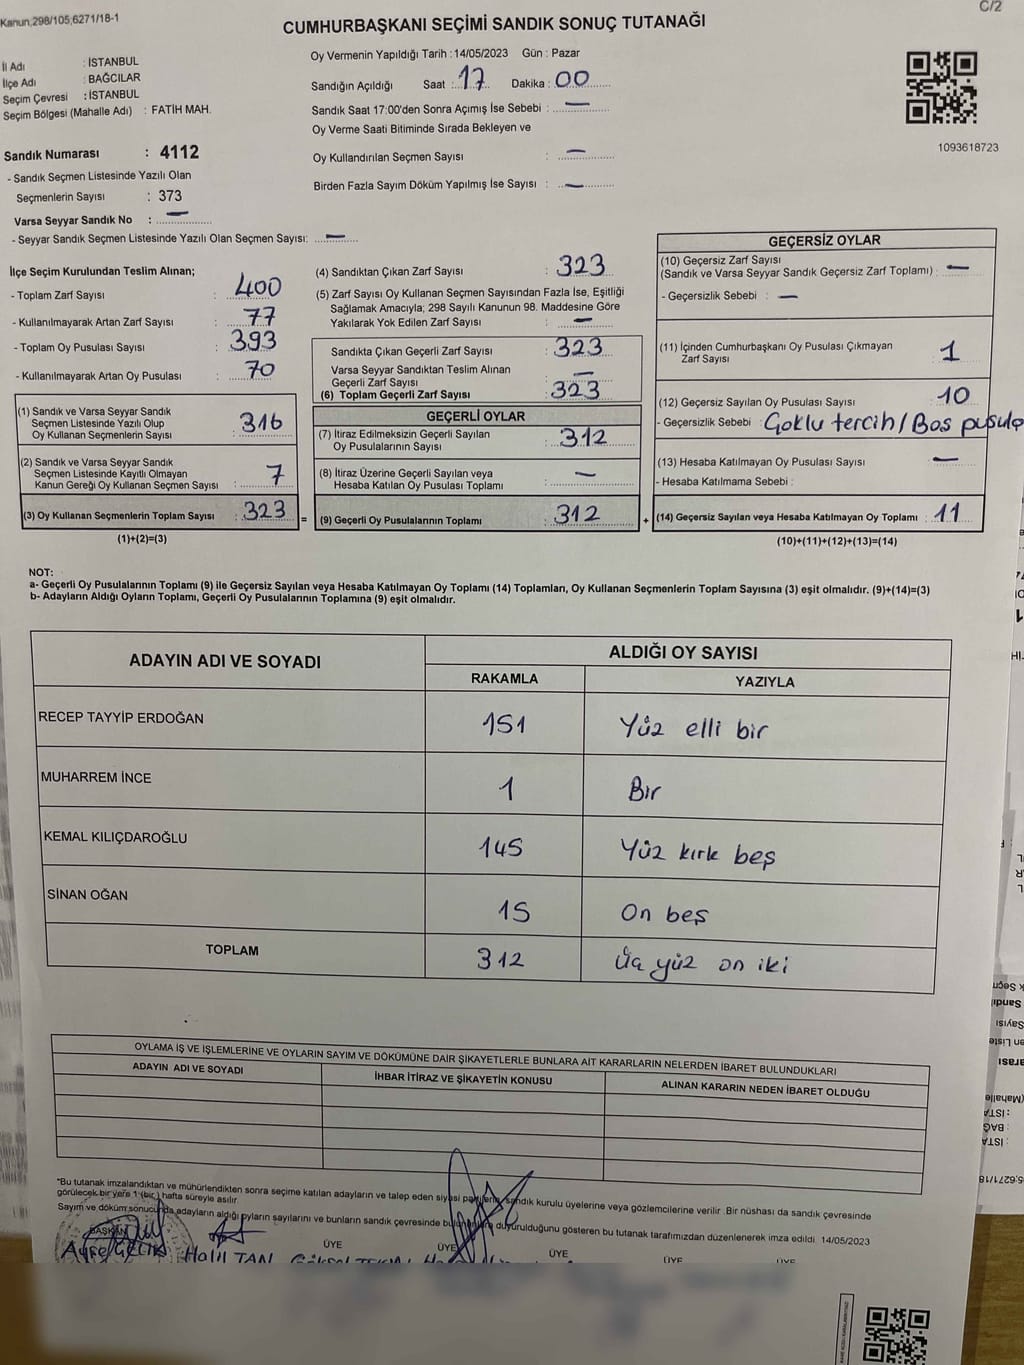 Kanun;298/105;6271/18-1
C/2
CUMHURBAŞKANI SEÇİMİ SANDIK SONUÇ TUTANAĞI
İl Adı : İSTANBUL
İlçe Adı : BAĞCILAR
Seçim Çevresi : İSTANBUL
Seçim Bölgesi (Mahalle Adı) : FATİH MAH.
Sandık Numarası : 4112
- Sandık Seçmen Listesinde Yazılı Olan
Seçmenlerin Sayısı : 373
Varsa Seyyar Sandık No : —
- Seyyar Sandık Seçmen Listesinde Yazılı Olan Seçmen Sayısı: —
Oy Vermenin Yapıldığı Tarih : 14/05/2023 Gün : Pazar
Sandığın Açıldığı Saat : 17 Dakika : 00
Sandık Saat 17:00'den Sonra Açımış İse Sebebi : —
Oy Verme Saati Bitiminde Sırada Bekleyen ve
Oy Kullandırılan Seçmen Sayısı : —
Birden Fazla Sayım Döküm Yapılmış İse Sayısı : —
1093618723
İlçe Seçim Kurulundan Teslim Alınan;
- Toplam Zarf Sayısı : 400
- Kullanılmayarak Artan Zarf Sayısı : 77
- Toplam Oy Pusulası Sayısı : 393
- Kullanılmayarak Artan Oy Pusulası : 70
(1) Sandık ve Varsa Seyyar Sandık
Seçmen Listesinde Yazılı Olup
Oy Kullanan Seçmenlerin Sayısı : 316
(2) Sandık ve Varsa Seyyar Sandık
Seçmen Listesinde Kayıtlı Olmayan
Kanun Gereği Oy Kullanan Seçmen Sayısı : 7
(3) Oy Kullanan Seçmenlerin Toplam Sayısı : 323 =
(1)+(2)=(3)
(4) Sandıktan Çıkan Zarf Sayısı : 323
(5) Zarf Sayısı Oy Kullanan Seçmen Sayısından Fazla İse, Eşitliği
Sağlamak Amacıyla; 298 Sayılı Kanunun 98. Maddesine Göre
Yakılarak Yok Edilen Zarf Sayısı : —
Sandıkta Çıkan Geçerli Zarf Sayısı : 323
Varsa Seyyar Sandıktan Teslim Alınan
Geçerli Zarf Sayısı : —
(6) Toplam Geçerli Zarf Sayısı : 323
GEÇERLİ OYLAR
(7) İtiraz Edilmeksizin Geçerli Sayılan
Oy Pusulalarının Sayısı : 312
(8) İtiraz Üzerine Geçerli Sayılan veya
Hesaba Katılan Oy Pusulası Toplamı : —
(9) Geçerli Oy Pusulalarının Toplamı : 312 +
GEÇERSİZ OYLAR
(10) Geçersiz Zarf Sayısı
(Sandık ve Varsa Seyyar Sandık Geçersiz Zarf Toplamı) : —
- Geçersizlik Sebebi : —
(11) İçinden Cumhurbaşkanı Oy Pusulası Çıkmayan
Zarf Sayısı : 1
(12) Geçersiz Sayılan Oy Pusulası Sayısı : 10
- Geçersizlik Sebebi : Çoklu tercih / Boş pusula
(13) Hesaba Katılmayan Oy Pusulası Sayısı : —
- Hesaba Katılmama Sebebi :
(14) Geçersiz Sayılan veya Hesaba Katılmayan Oy Toplamı : 11
(10)+(11)+(12)+(13)=(14)
NOT:
a- Geçerli Oy Pusulalarının Toplamı (9) ile Geçersiz Sayılan veya Hesaba Katılmayan Oy Toplamı (14) Toplamları, Oy Kullanan Seçmenlerin Toplam Sayısına (3) eşit olmalıdır. (9)+(14)=(3)
b- Adayların Aldığı Oyların Toplamı, Geçerli Oy Pusulalarının Toplamına (9) eşit olmalıdır.
ADAYIN ADI VE SOYADI ALDIĞI OY SAYISI
RAKAMLA YAZIYLA
RECEP TAYYİP ERDOĞAN 151 Yüz elli bir
MUHARREM İNCE 1 Bir
KEMAL KILIÇDAROĞLU 145 Yüz kırk beş
SİNAN OĞAN 15 On beş
TOPLAM 312 Üç yüz on iki
OYLAMA İŞ VE İŞLEMLERİNE VE OYLARIN SAYIM VE DÖKÜMÜNE DAİR ŞİKAYETLERLE BUNLARA AİT KARARLARIN NELERDEN İBARET BULUNDUKLARI
ADAYIN ADI VE SOYADI İHBAR İTİRAZ VE ŞİKAYETİN KONUSU ALINAN KARARIN NEDEN İBARET OLDUĞU
*Bu tutanak imzalandıktan ve mühürlendikten sonra seçime katılan adayların ve talep eden siyasi sandık kurulu üyelerine veya gözlemcilerine verilir. Bir nüshası da sandık çevresinde
görülecek bir yere 1 (bir) hafta süreyle asılır.
Sayım ve döküm sonucunda adayların aldığı oyların sayılarını ve bunların sandık çevresinde duyurulduğunu gösteren bu tutanak tarafımızdan düzenlenerek imza edildi. 14/05/2023
BAŞKAN ÜYE ÜYE ÜYE ÜYE ÜYE
Halil TAN